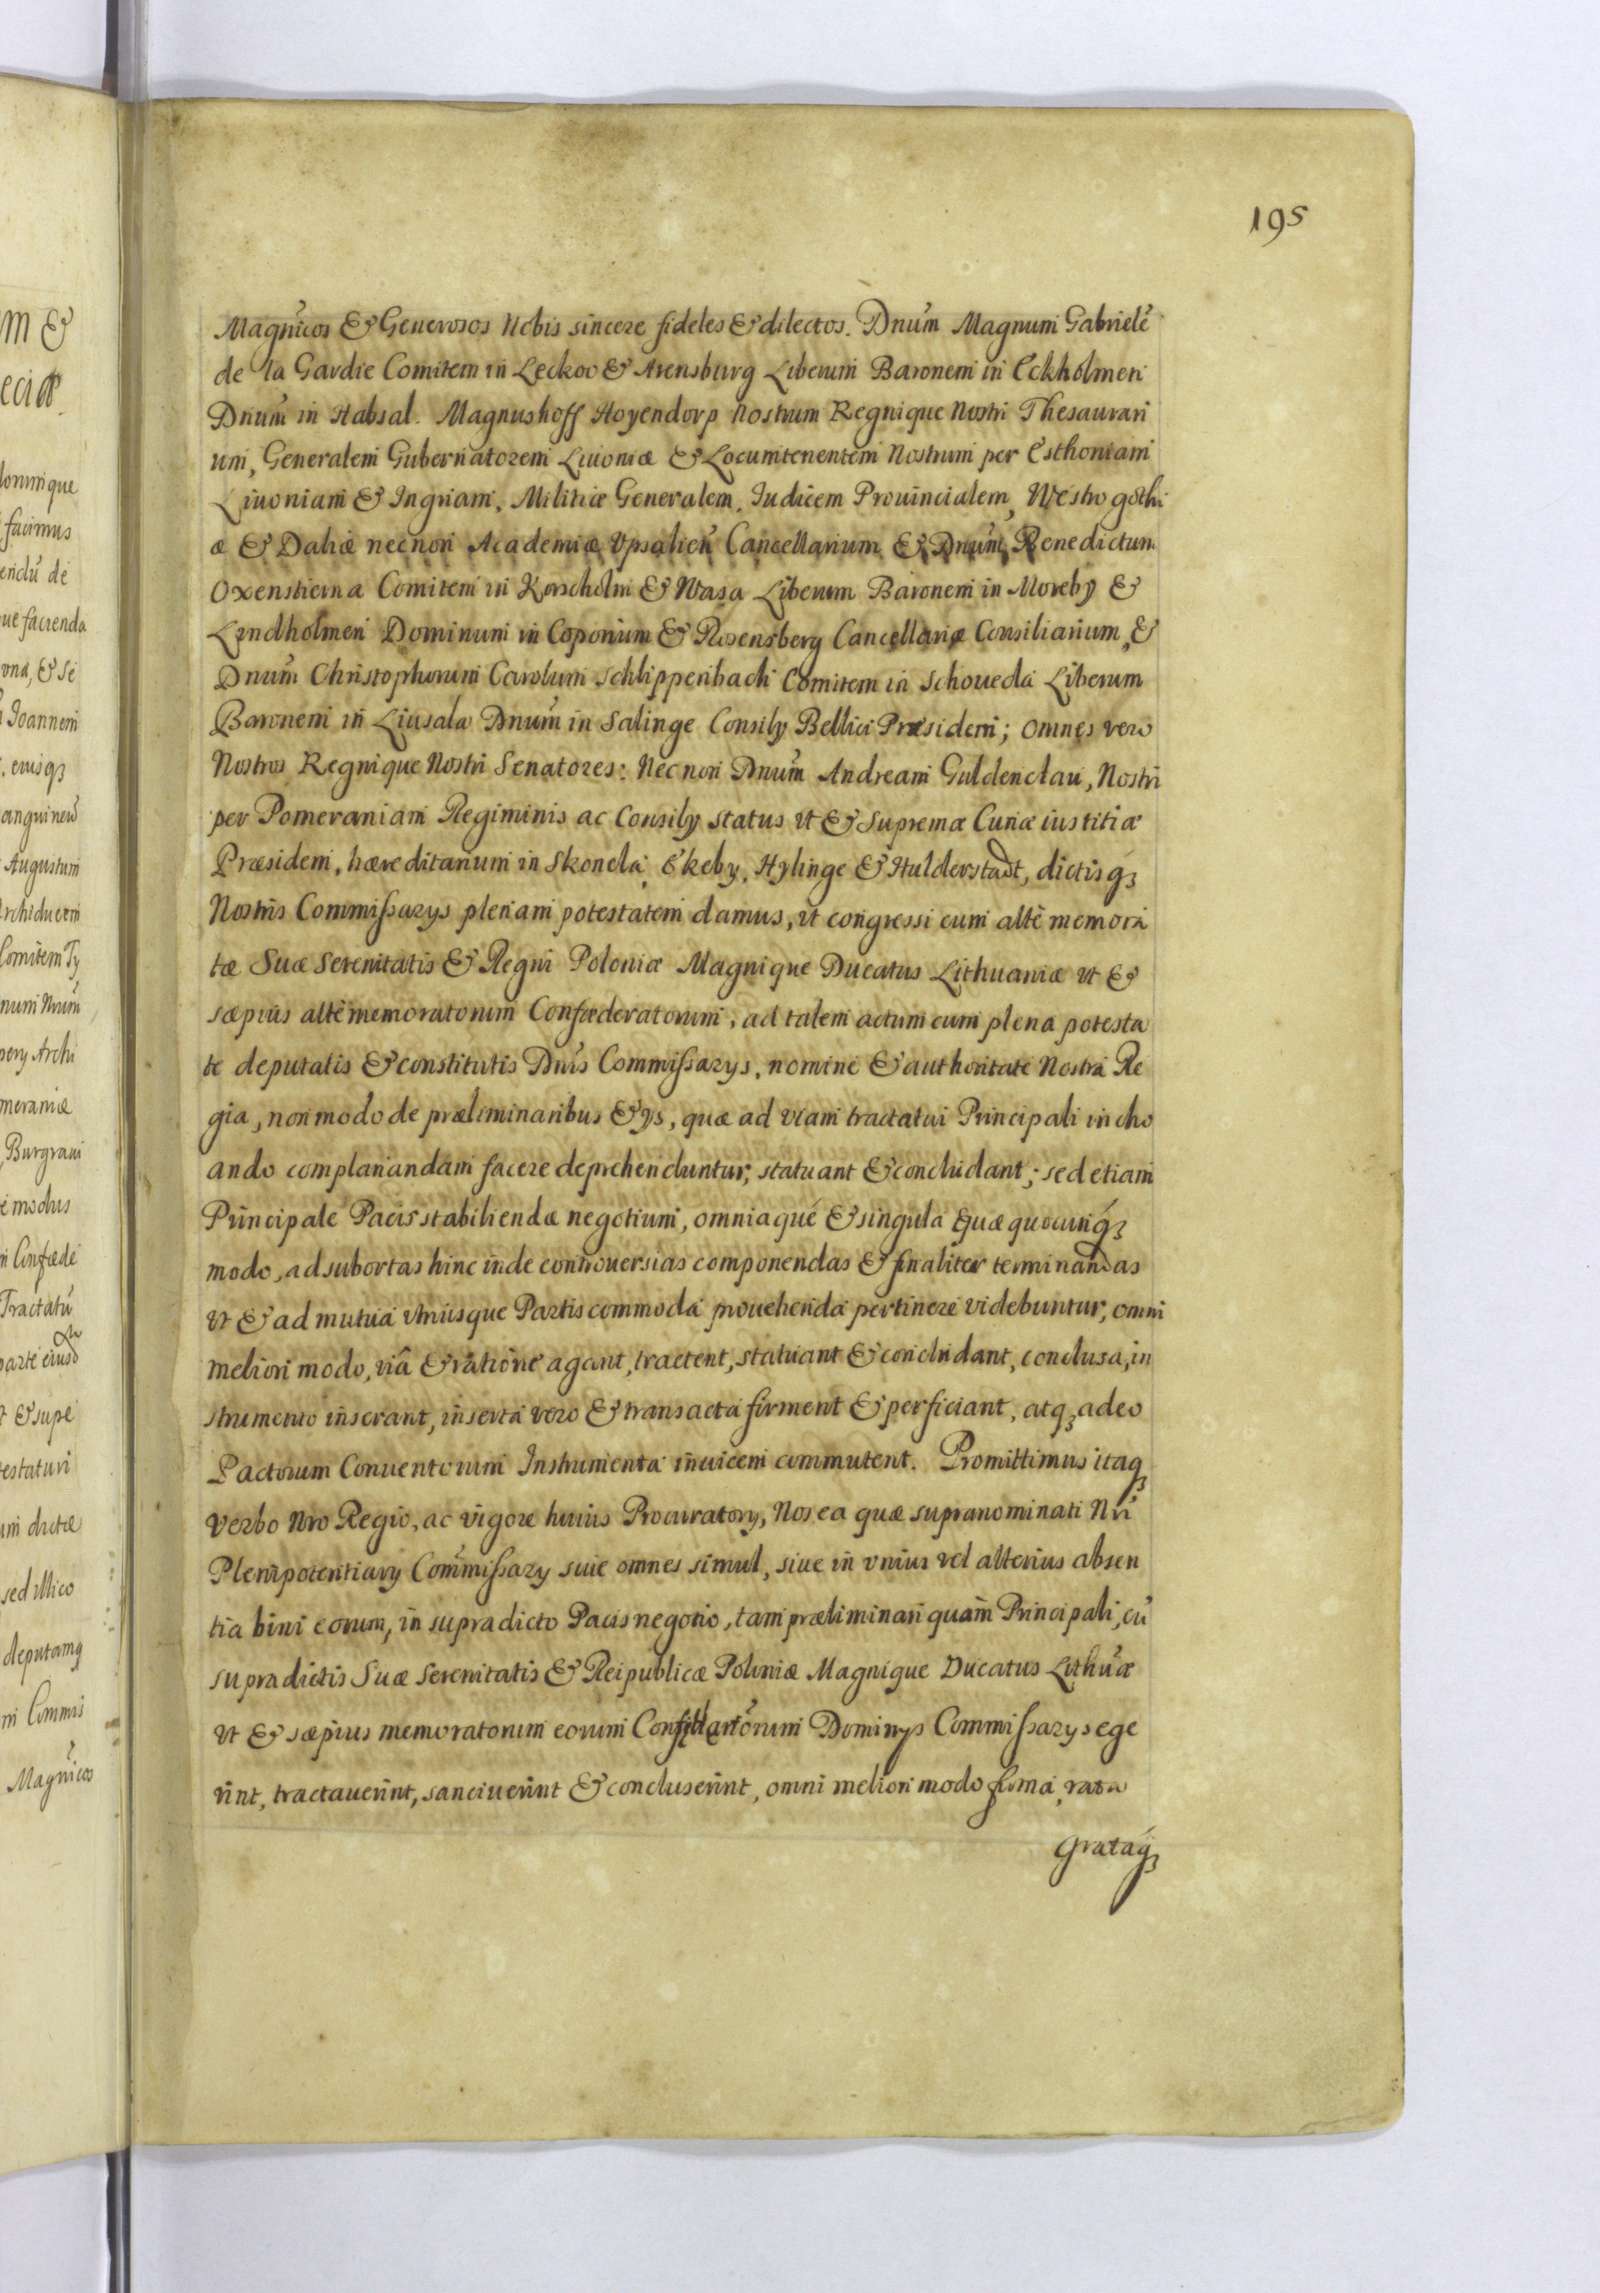 195
Magnicos & Generosos Nobis sincere fideles & dilectos. Dnum Magnum Gabrielē
de la Gardie Comitem in Leckoo & Arensburg Liberum Baronem in Eckholmen
Dnum in Habsal. Magnushoff Hoyendorp Nostrum Regnique Nostri Thesaurari
um, Generalem Gubernatorem Liuoniæ & Locumtenentem Nostrum per Esthoniam
Liuoniam & Ingriam, Militiæ Generalem, Iudicem Prouincialem, Westro gothi
æ & Daliæ necnon Academiæ Vpsalien Cancellarium & Dnum Benedictum
Oxenstierna Comitem in Korscholm & Wasa Liberum Baronem in Moreby &
Lindholmen Dominum in Caporium & Rosensberg Cancellariæ Consiliarium, &
Dnum Christophorum Carolum Schlippenbach Comitem in Schoueda Liberum
Baronem in Liusala Dnum in Salinge Consily Bellici Præsidem; omnes vero
Nostros Regnique Nostri Senatores: Necnon Dnum Andream Guldenclau, Nostri
per Pomeraniam Regiminis ac Consily status vt & Supremæ Curiæ iustitiæ
Præsidem, hæreditarium in Skoncla, Ekeby, Hylinge & Hulderstadt, dictisq3
Nostris Commissarys plenam potestatem damus, vt congressi cum altè memora
tæ Suæ Serenitatis & Regni Poloniæ Magnique Ducatus Lithuaniæ vt &
sæpius altè memoratorum Confœderatorum, ad talem actum cum plena potesta
te deputatis & constitutis Dnis Commissarys, nomine & authoritate Nostra Re
gia, non modo de præliminaribus & ys, quæ ad viam tractatui Principali incho
ando complanandam facere deprehenduntur, statuant & concludant; sed etiam
Principale Pacis stabiliendæ negotium, omniaque & singula quæ quocunq3
modo, ad subortas hinc inde controuersias componendas & finaliter terminandas
vt & ad mutua vtriusque Partis commoda prouehenda pertinere videbuntur, omni
meliori modo, viâ & ratione agant, tractent, statuant & concludant, conclusa, in
strumento inserant, inserta vero & transacta firment & perficiant, atq3 adeo
Pactorum Conuentorum Instrumenta inuicem commutent. Promittimus itaq3
verbo Nro Regio, ac vigore huius Procuratory, Nos ea quæ supranominati Nri
Plenipotentiary Commissary siue omnes simul, siue in vnius vel alterius absen
tia bini eorum, in supradicto Pacis negotio, tam præliminari quam Principali, cū
supradictis Suæ Serenitatis & Reipublicæ Poloniæ Magnique Ducatus Lithuæ
vt & sæpius memoratorum eorum Dominys Commissarys ege
rint, tractauerint, sanciuerint & concluserint, omni meliori modo firma, rata
grataq3